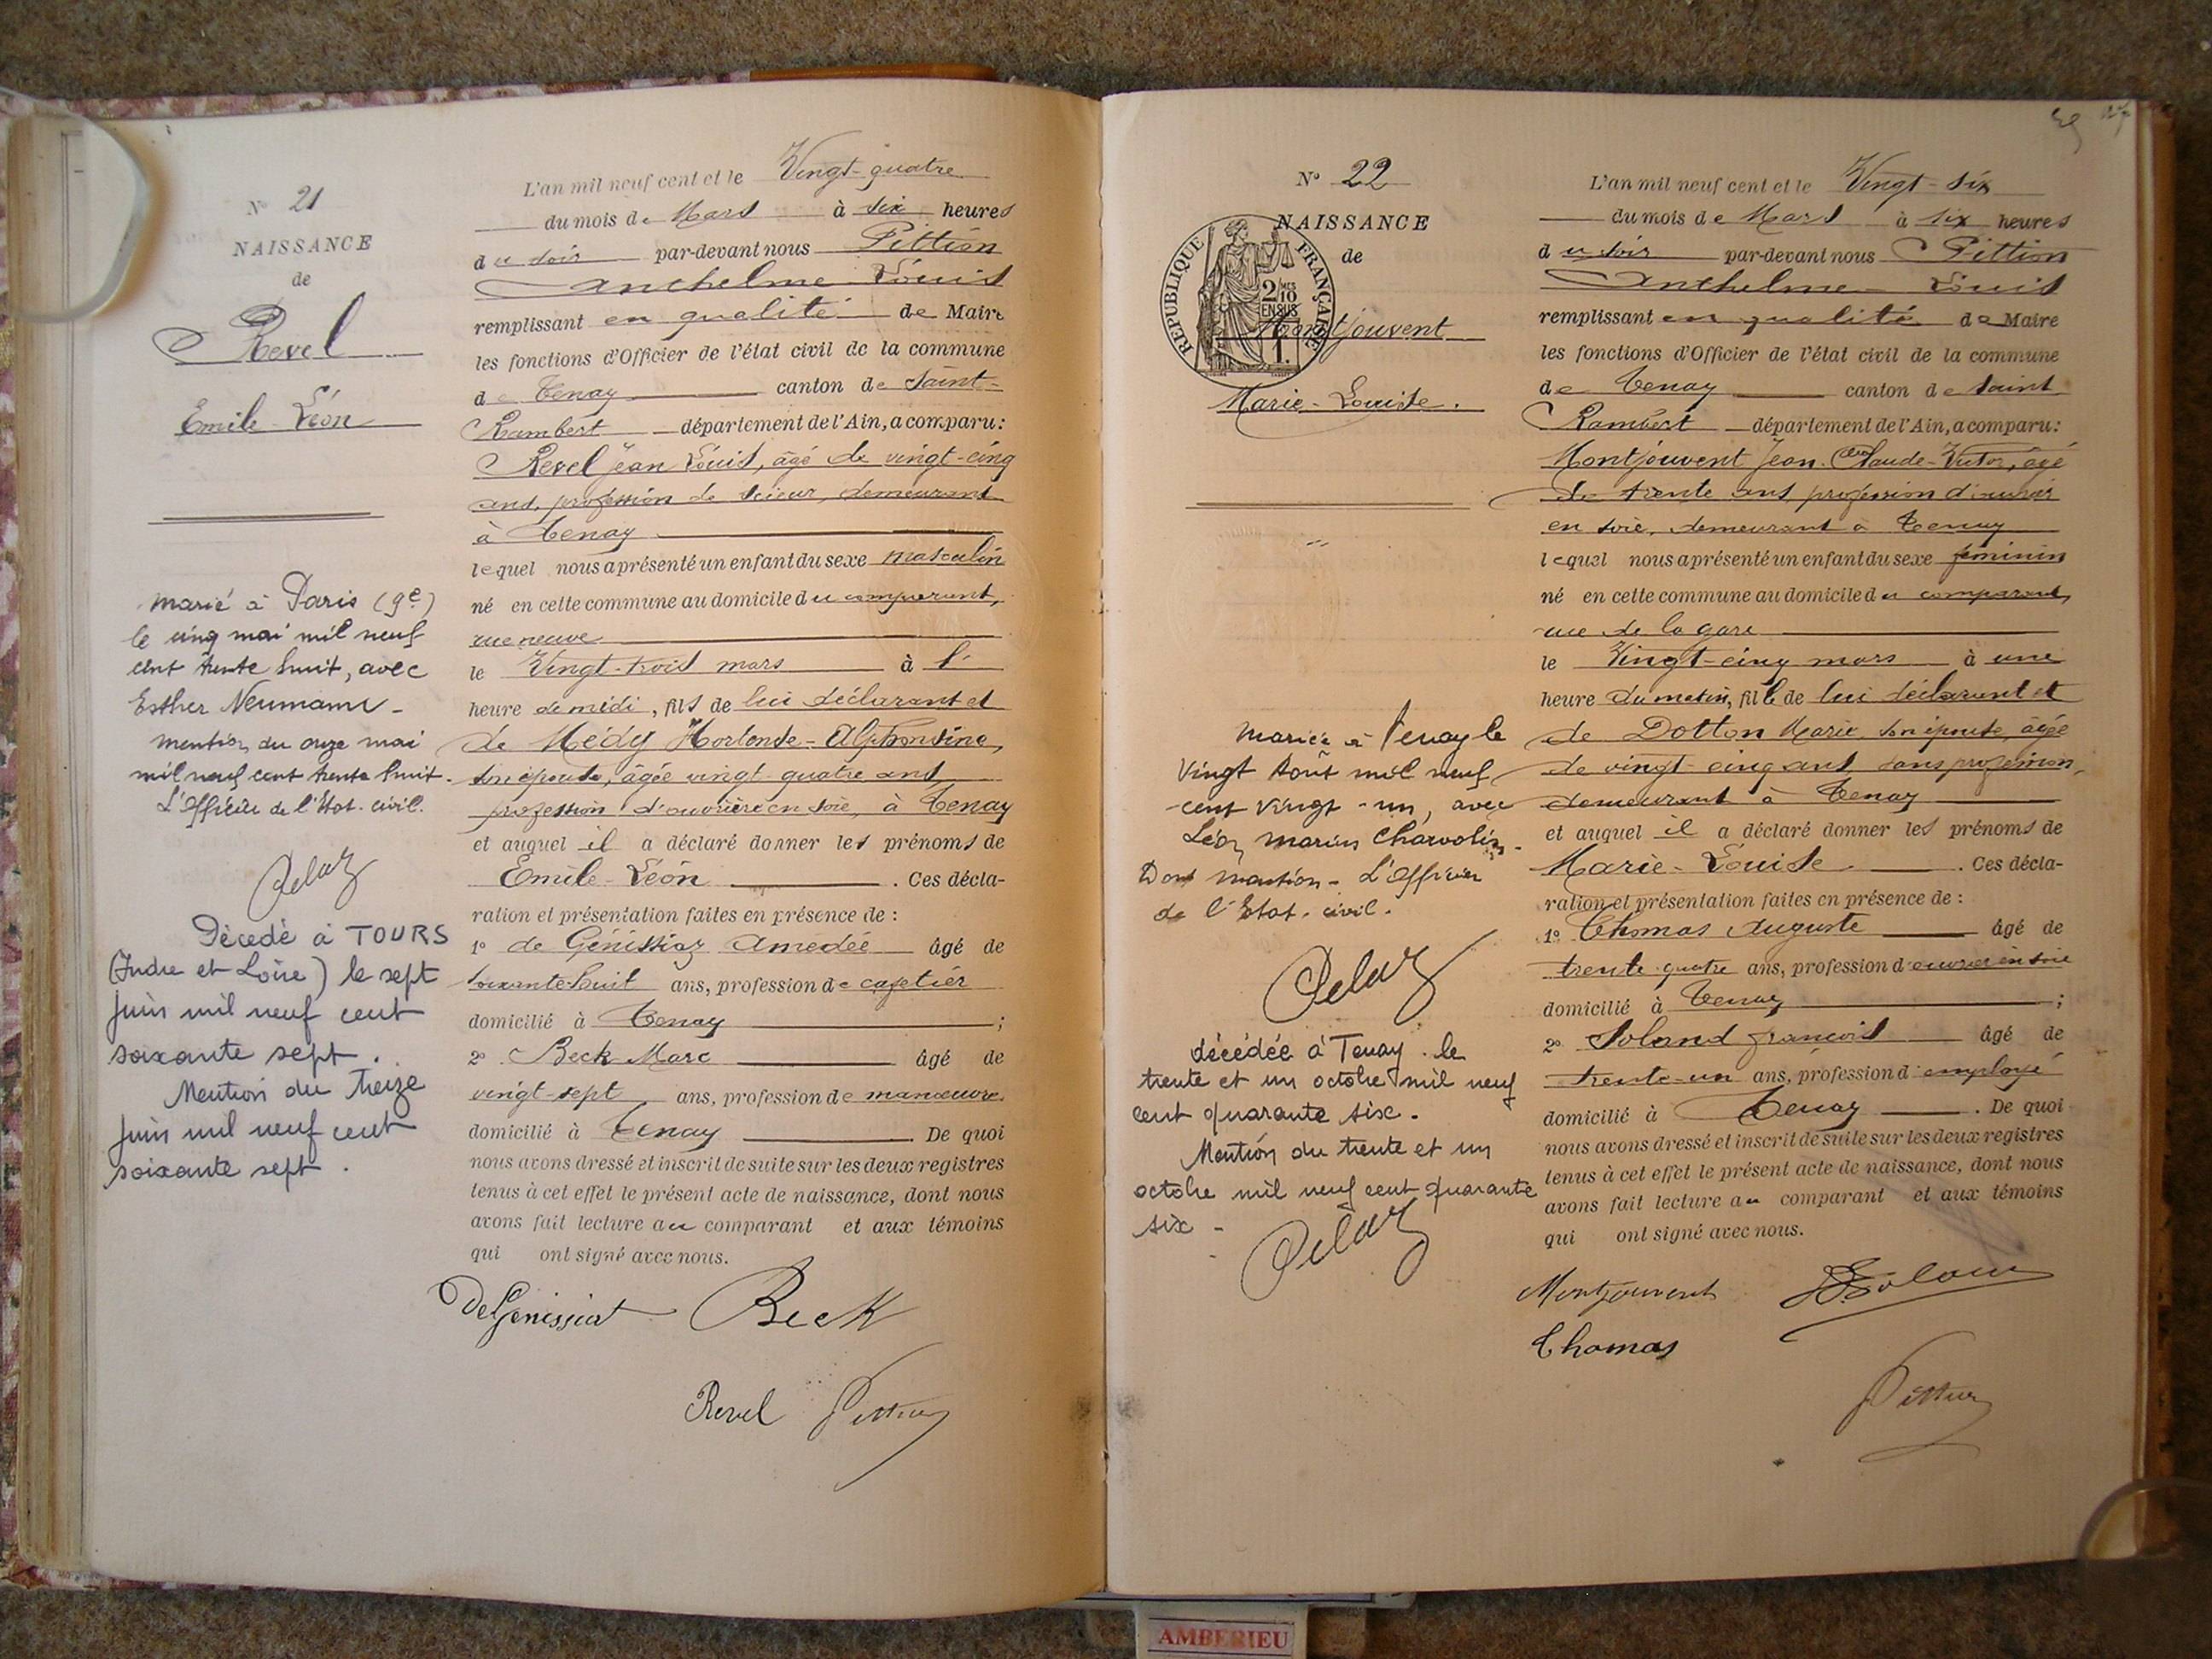 N° 21
NAISSANCE
de
Revel
Emile-Léon
marié à Paris (9e)
le cinq mai mil neuf
cent trente huit, avec
Esther Neumann -
mention du onze mai
mil neuf cent trente huit.
L'Officier de l'Etat-civil.
Décédé à TOURS
(Indre et Loire) le sept
juin mil neuf cent
soixante sept.
Mention du treize
juin mil neuf cent
soixante sept.
L'an mil neuf cent et le Vingt-quatre
du mois de Mars à six heures
du soir par-devant nous Pittion
Anthelme Louis
remplissant en qualité de Maire
les fonctions d'Officier de l'état civil de la commune
de Tenay canton de Saint-
Rambert département de l'Ain, a comparu:
Revel Jean Louis, âgé de vingt-cinq
ans, profession de scieur, demeurant
à Tenay
lequel nous a présenté un enfant du sexe masculin
né en cette commune au domicile du comparant,
rue neuve
le Vingt-trois mars à
heure de midi, fils de lui déclarant et
de Médy Hortense-Alphonsine,
son épouse, âgée vingt-quatre ans,
profession d'ouvrière en soie, à Tenay
et auquel il a déclaré donner les prénoms de
Emile-Léon. Ces décla-
ration et présentation faites en présence de :
1° de Génissiaz Amédée âgé de
soixante-huit ans, profession de cafetier
domicilié à Tenay ;
2° Beck Marc âgé de
vingt-sept ans, profession de manoeuvre
domicilié à Tenay. De quoi
nous avons dressé et inscrit de suite sur les deux registres
tenus à cet effet le présent acte de naissance, dont nous
avons fait lecture au comparant et aux témoins
qui ont signé avec nous.
DeGenissiat Beck
Revel Pittion
N° 22
NAISSANCE
de
REPUBLIQUE FRANÇAISE
2/10 MES
EN SUS
1.
Montjouvent
Marie-Louise.
Mariée à Tenay le
Vingt Août mil neuf
-cent vingt-un, avec
Léon Marius Charvolin.
Dont mention - L'Officier
de l'Etat-civil.
décédée à Tenay le
trente et un octobre mil neuf
cent quarante six.
Mention du trente et un
octobre mil neuf cent quarante
six -
L'an mil neuf cent et le Vingt-six
du mois de Mars à six heures
du soir par-devant nous Pittion
Anthelme Louis
remplissant en qualité de Maire
les fonctions d'Officier de l'état civil de la commune
de Tenay canton de Saint
Rambert département de l'Ain, a comparu:
Montjouvent Jean-Claude-Victor, âgé
de trente ans, profession d'ouvrier
en soie, demeurant à Tenay
lequel nous a présenté un enfant du sexe féminin
né en cette commune au domicile du comparant,
rue de la gare
le Vingt-cinq mars à une
heure du matin, fille de lui déclarant et
de Dotton Marie, son épouse, âgée
de vingt-cinq ans, sans profession,
demeurant à Tenay
et auquel il a déclaré donner les prénoms de
Marie-Louise. Ces décla-
ration et présentation faites en présence de :
1° Thomas Auguste âgé de
trente-quatre ans, profession d'ouvrier en soie
domicilié à Tenay ;
2° Soland françois âgé de
trente-un ans, profession d'employé
domicilié à Tenay. De quoi
nous avons dressé et inscrit de suite sur les deux registres
tenus à cet effet le présent acte de naissance, dont nous
avons fait lecture au comparant et aux témoins
qui ont signé avec nous.
Montjouvent
Thomas
Pittion
AMBERIEU